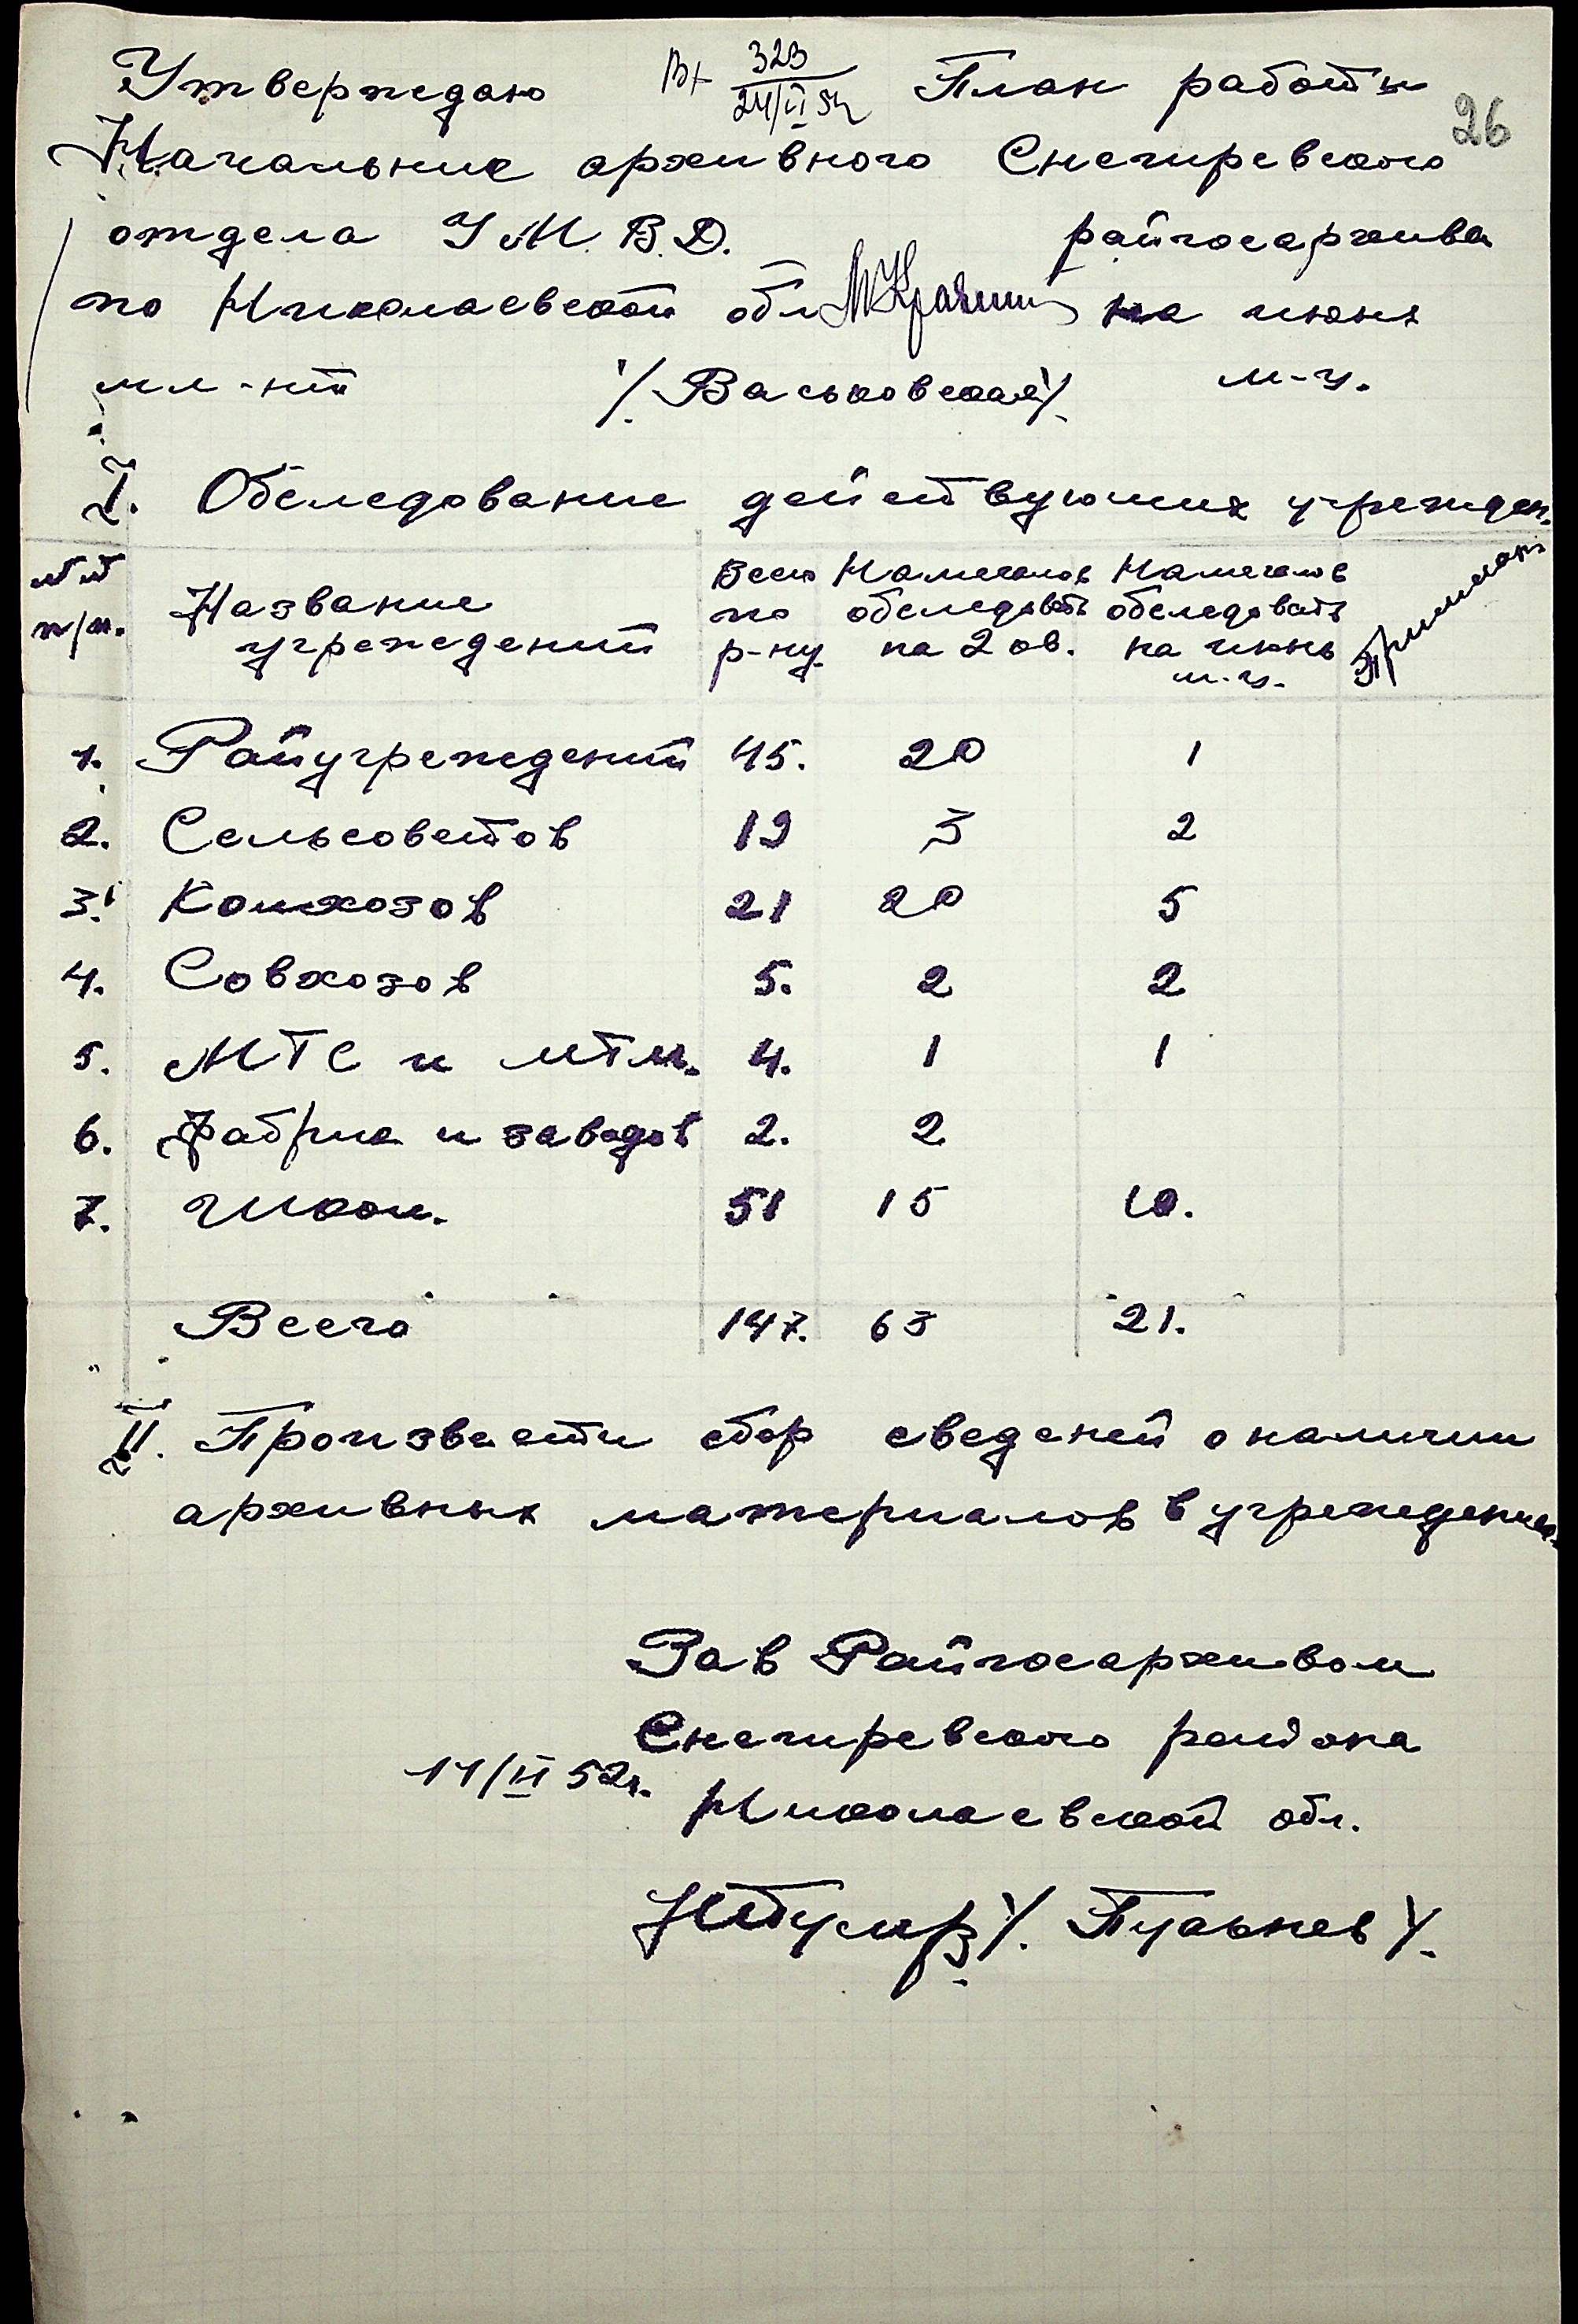 Утверждаю
Начальник архивного
отдела У.М.В.Д.
по Николаевской обл
мл-нт /Васьковская/
Вх 323
План работы
26
Снегиревского
райгосархива
на июнь
м-ц.
I. Обследование действующих учрежден.
№№ п/п.
Название учреждений
Всего по р-ну
Намечалов обследовать на 2 ов.
Намечалов обследовать на июнь м-ц.
Примечан
1. Райучреждений 45. 20 1
2. Сельсоветов 19 3 2
3. Колхозов 21 20 5
4. Совхозов 5. 2 2
5. МТС и МТМ. 4. 1 1
6. Фабрик и заводов 2. 2
7. Школ. 51 15 10.
Всего 147. 63 21.
II. Произвести сбор сведений о наличии
архивных материалов в учрежденых.
Зав Райгосархивом
Снегиревского района
14/II 52г.
Николаевской обл.